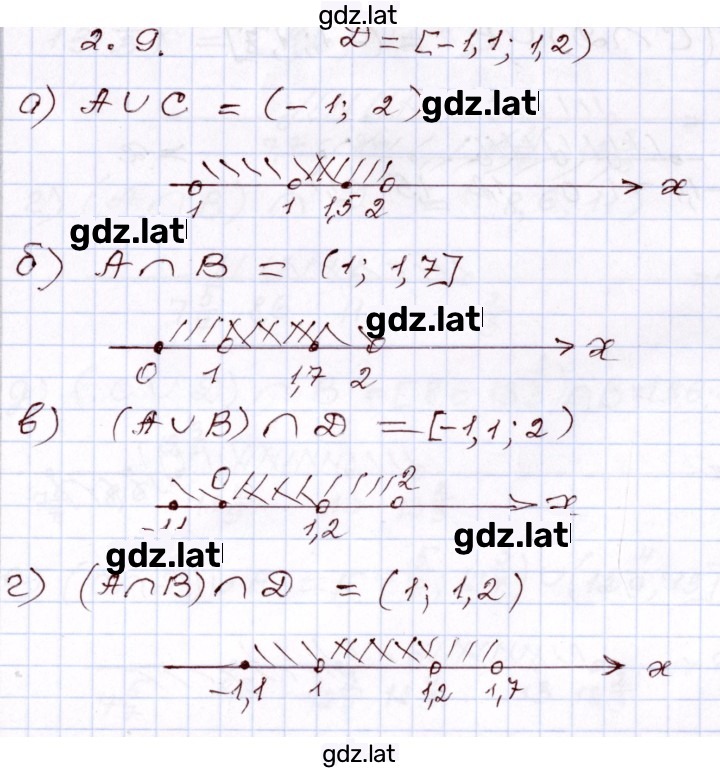 gdz.lat
2.9. D = [-1,1; 1,2)
а) A ∪ C = (-1; 2) gdz.lat
x
1 1 1,5 2
gdz.lat
б) A ∩ B = (1; 1,7]
gdz.lat
x
0 1 1,7 2
в) (A ∪ B) ∩ D = [-1,1; 2)
0 2
x
-1,1 1,2
gdz.lat
gdz.lat
г) (A ∩ B) ∩ D = (1; 1,2)
x
-1,1 1 1,2 1,7
gdz.lat